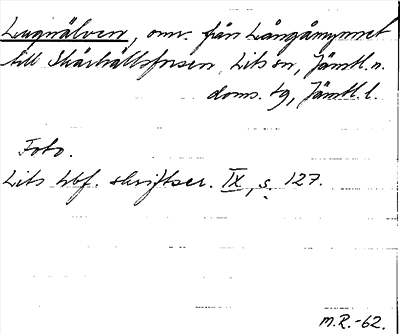 Lugnälven, omr. från Långåmynnet
till Skärhällsforsen, Lits sn, Jämtl. n.
doms. tg, Jämtl. l.
Foto.
Lits hbf. skriftser. IX, s. 127.
M.R.-62.